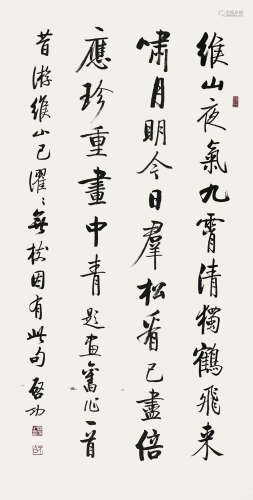 緱山夜氣九霄清獨鶴飛來
嘯月明今日羣松看已盡倍
應珍重畫中青題畫舊作一首
昔游緱山已濯〻無樹因有此句啓功